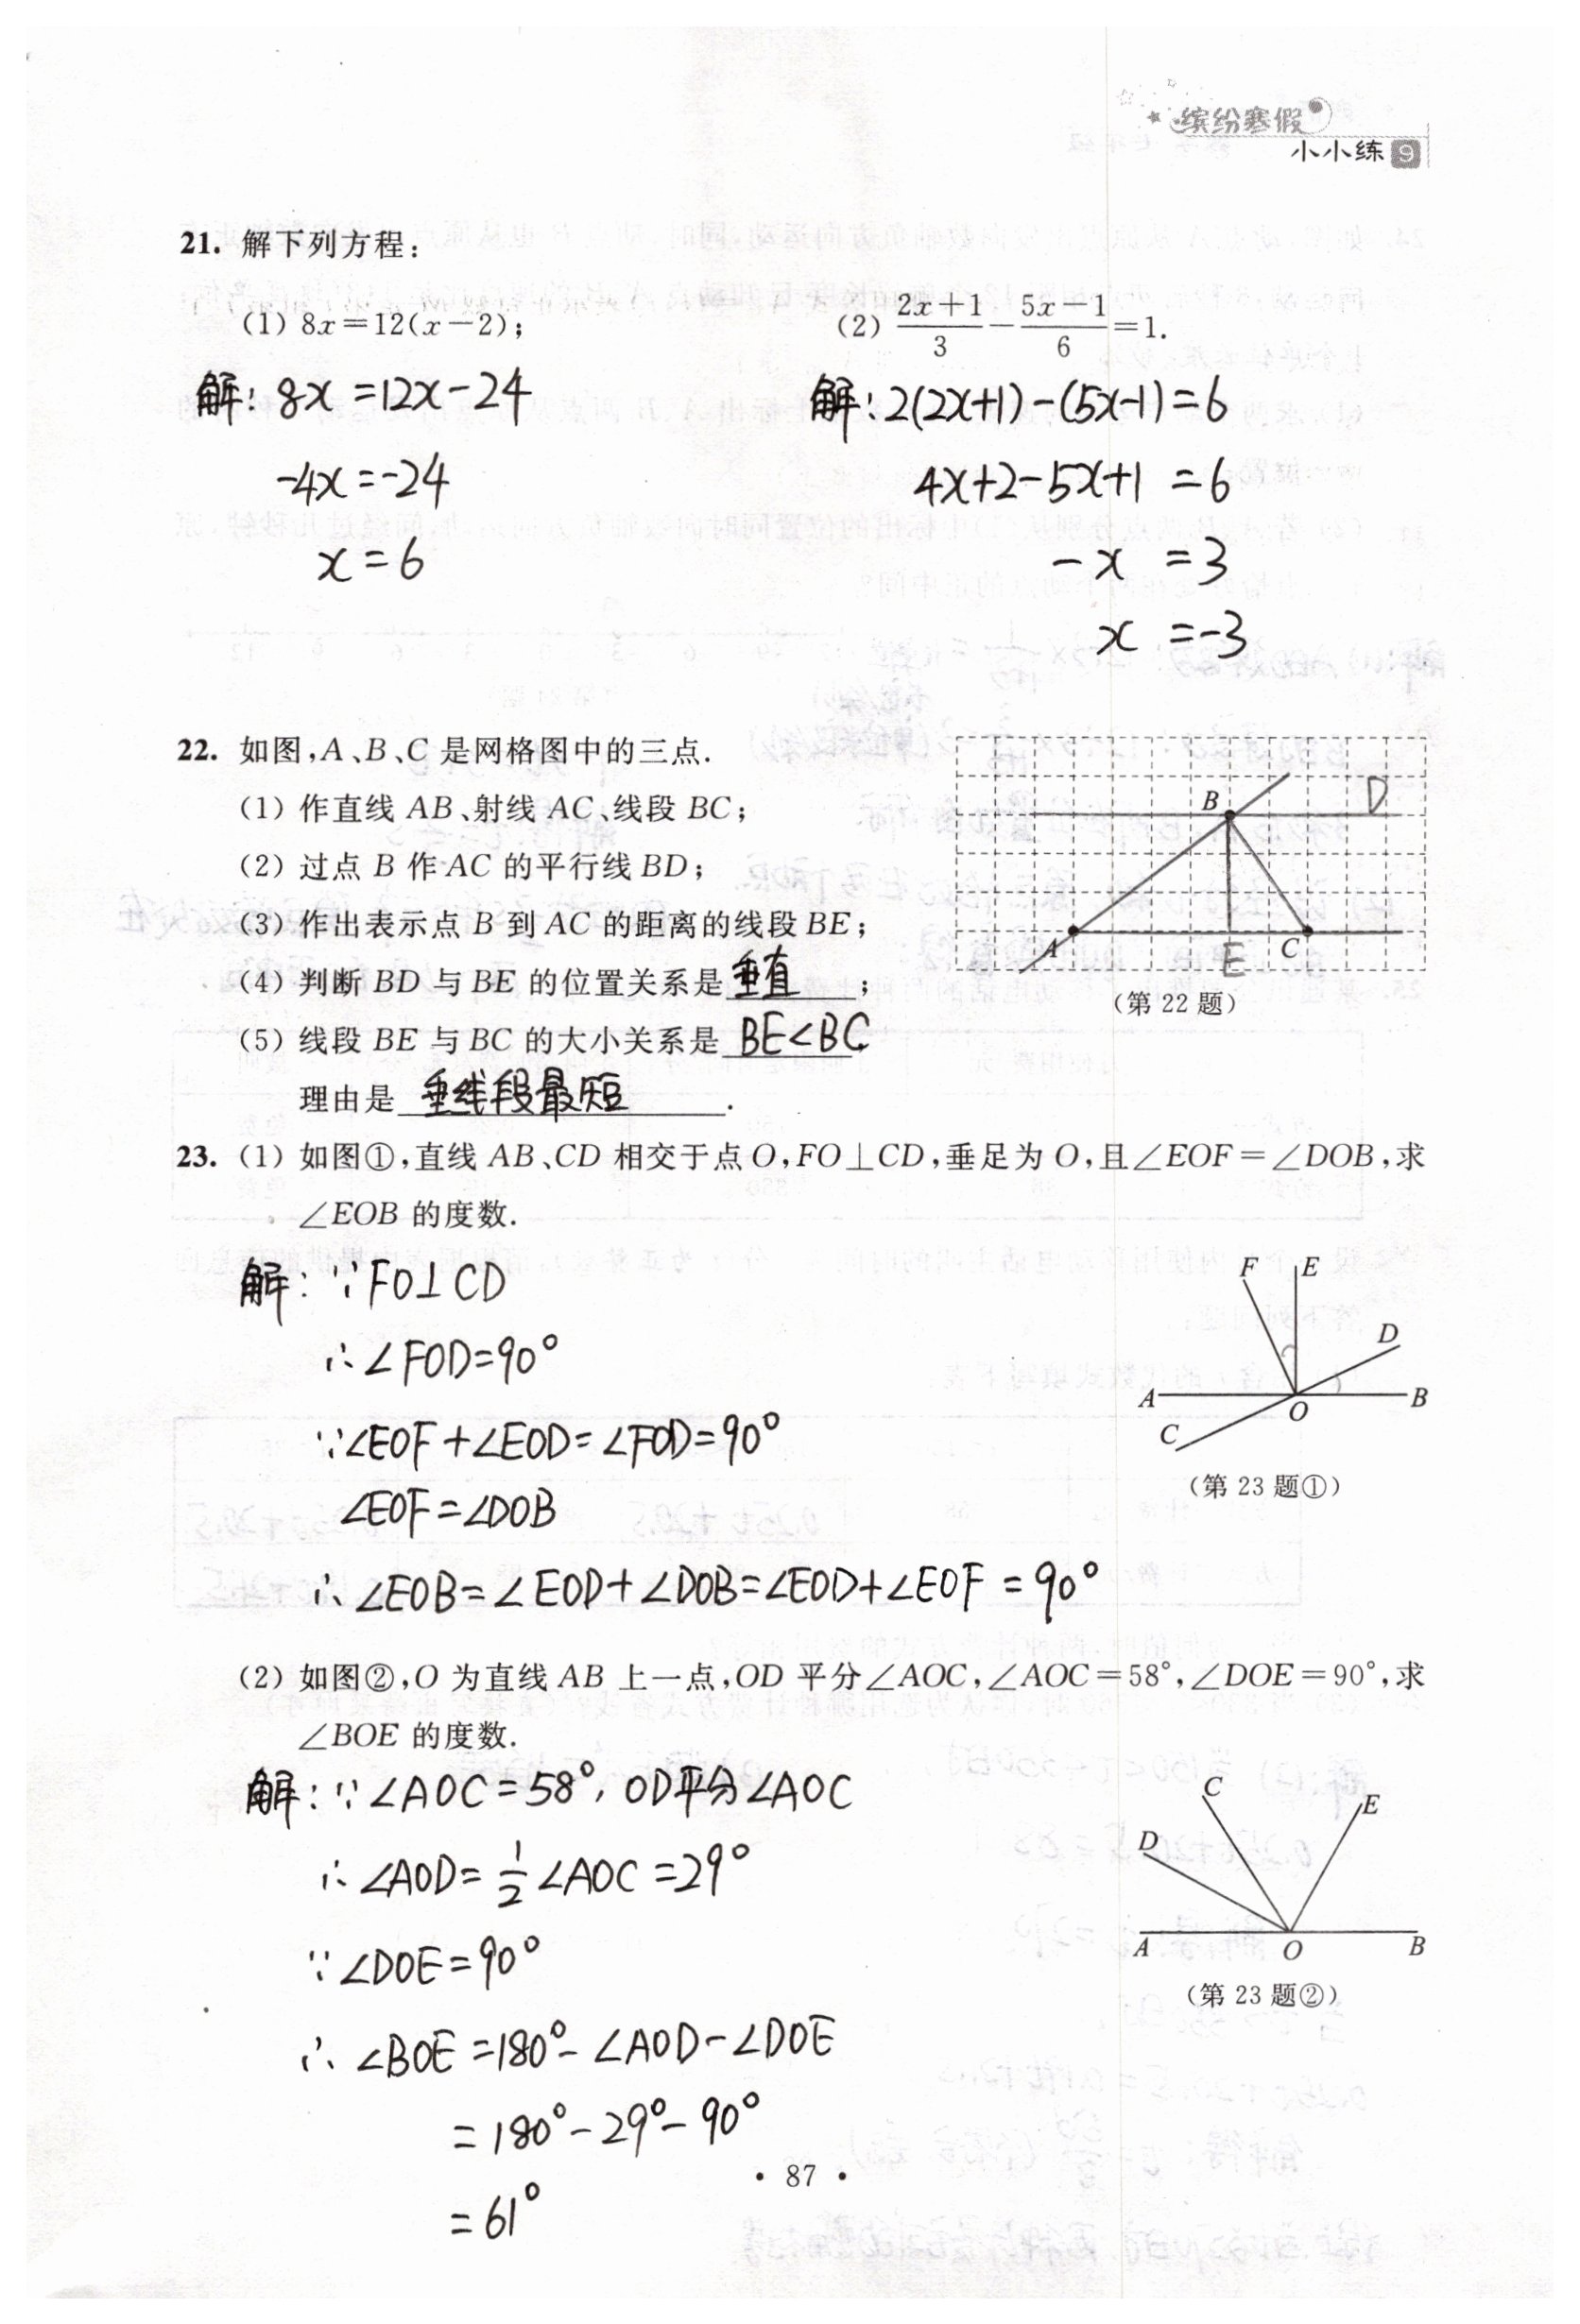 缤纷寒假
小小练 9
21. 解下列方程:
(1) 8x=12(x-2);
(2) (2x+1)/3-(5x-1)/6=1.
解: 8x=12x-24
-4x=-24
x=6
解: 2(2x+1)-(5x-1)=6
4x+2-5x+1=6
-x=3
x=-3
22. 如图,A、B、C 是网格图中的三点.
(1) 作直线 AB、射线 AC、线段 BC;
(2) 过点 B 作 AC 的平行线 BD;
(3) 作出表示点 B 到 AC 的距离的线段 BE;
(4) 判断 BD 与 BE 的位置关系是 垂直 ;
(5) 线段 BE 与 BC 的大小关系是 BE<BC ,
理由是 垂线段最短 .
B D
A E C
(第 22 题)
23. (1) 如图①,直线 AB、CD 相交于点 O,FO⊥CD,垂足为 O,且∠EOF=∠DOB,求
∠EOB 的度数.
解: ∵FO⊥CD
∴∠FOD=90°
∵∠EOF+∠EOD=∠FOD=90°
∠EOF=∠DOB
∴∠EOB=∠EOD+∠DOB=∠EOD+∠EOF=90°
F E
D
A O B
C
(第 23 题①)
(2) 如图②,O 为直线 AB 上一点,OD 平分∠AOC,∠AOC=58°,∠DOE=90°,求
∠BOE 的度数.
解: ∵∠AOC=58°, OD平分∠AOC
∴∠AOD=1/2∠AOC=29°
∵∠DOE=90°
∴∠BOE=180°-∠AOD-∠DOE
=180°-29°-90°
=61°
C E
D
A O B
(第 23 题②)
· 87 ·